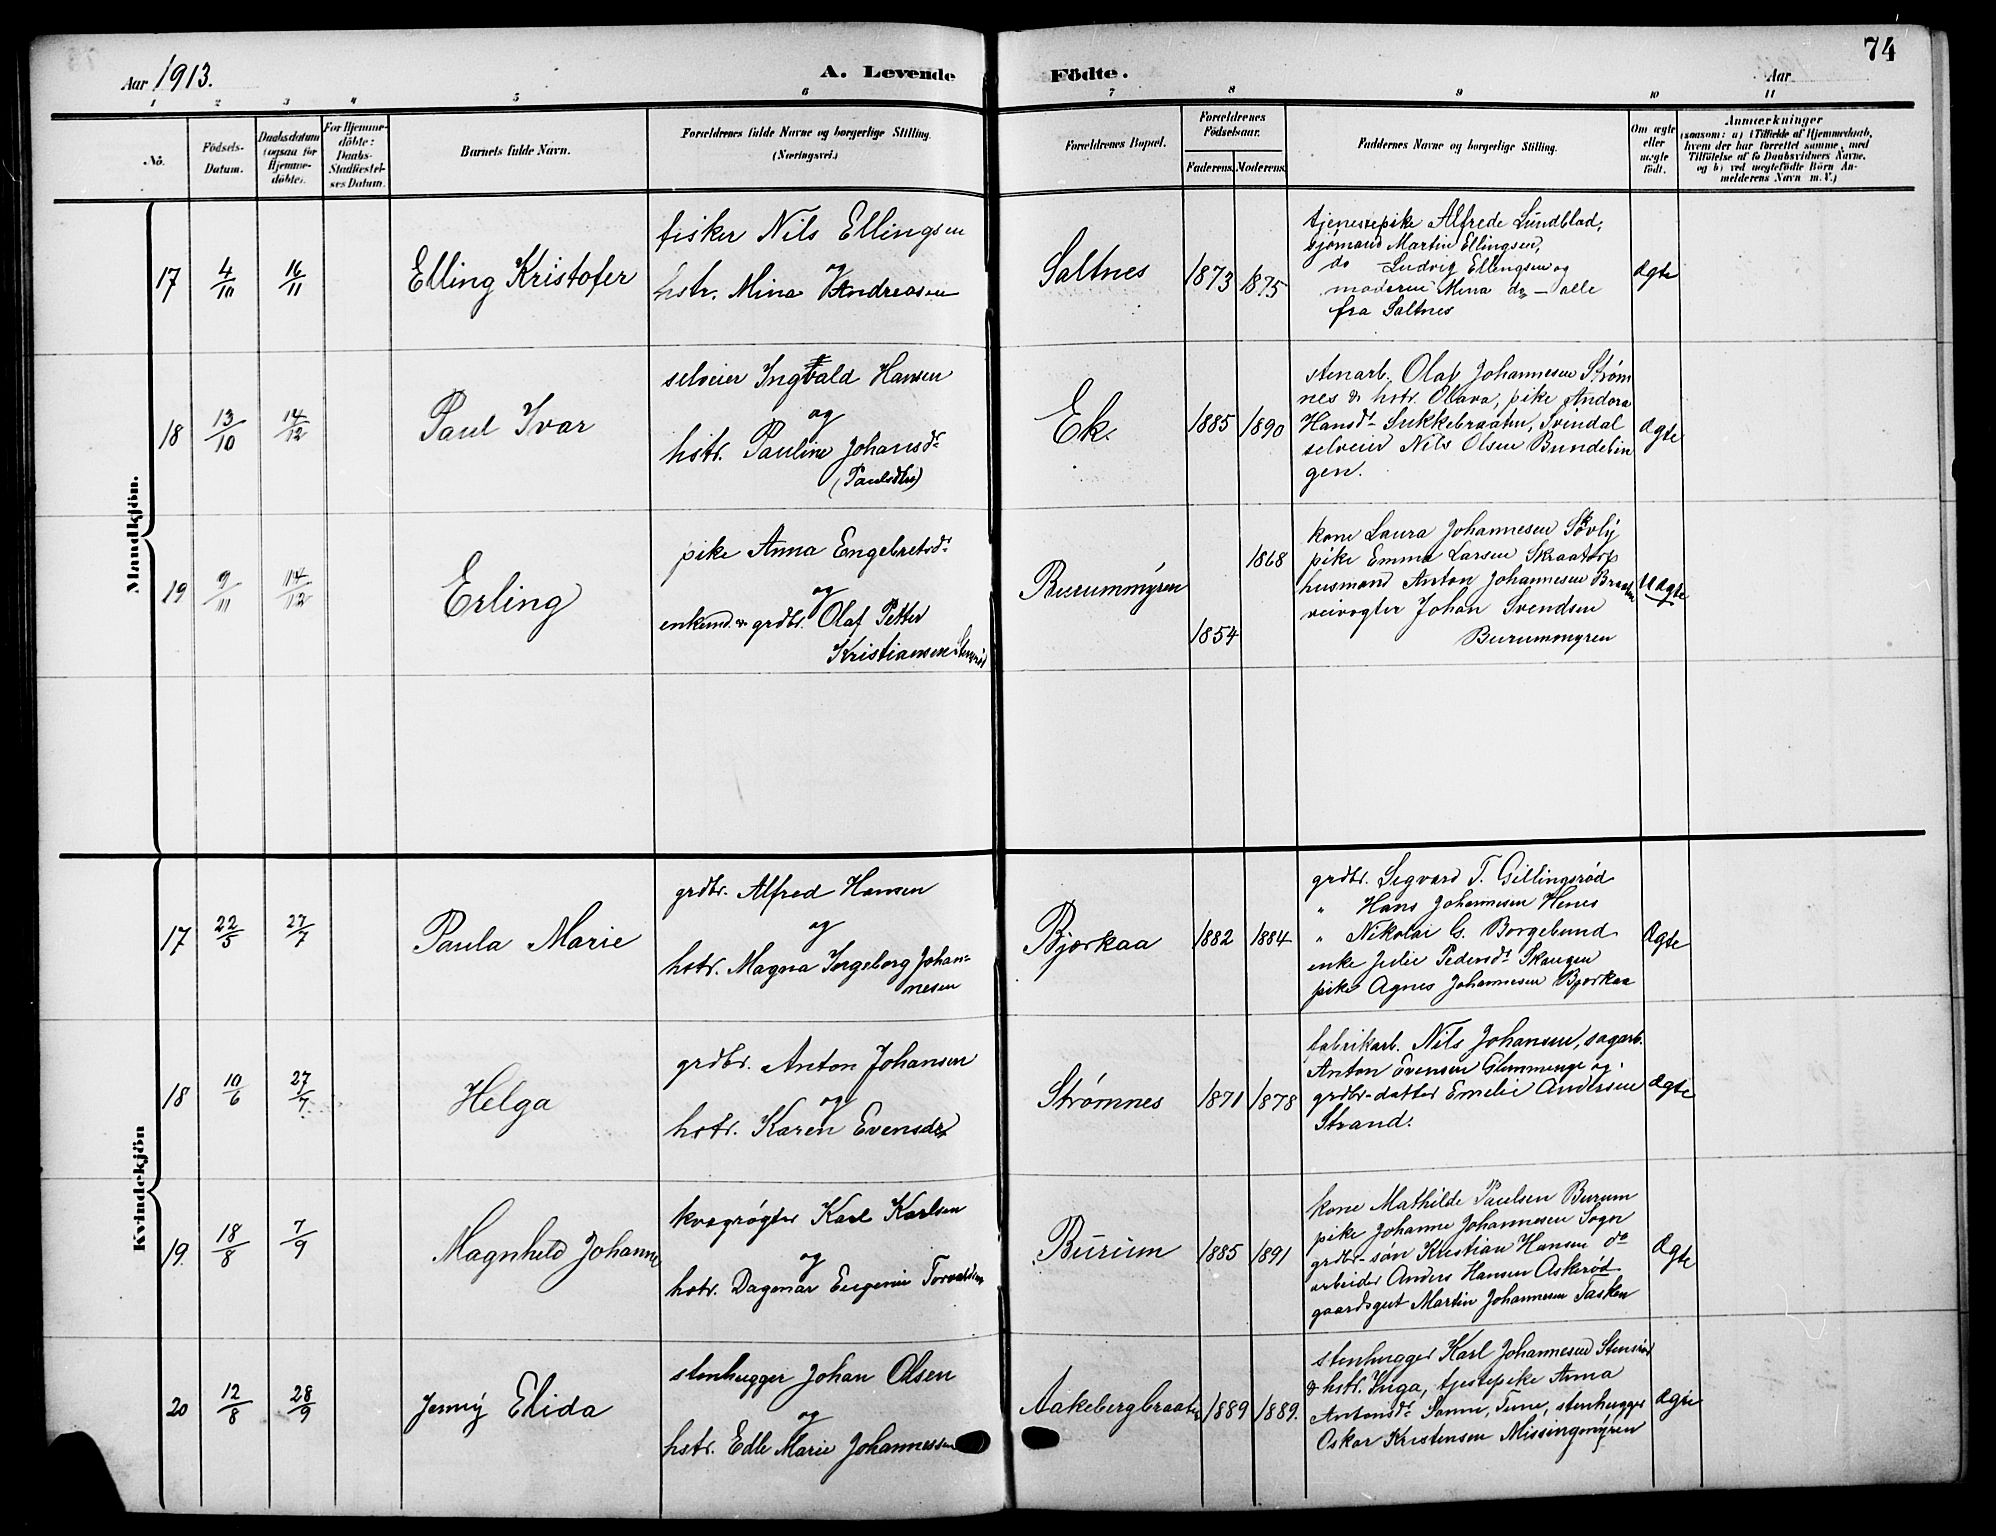 74
Aar 1913.
A. Levende Födte.
Aar
1 2 3 4 5 6 7 8 9 10 11
No.
Födsels-
Datum.
Daabsdatum
(ogsaa for
Hjemme-
döbte).
For Hjemme-
döbte:
Daabs-
Stadfæstel-
ses Datum.
Barnets fulde Navn.
Forældrenes fulde Navne og borgerlige Stilling.
(Næringsvei.)
Forældrenes Bopæl.
Forældrenes
Födselsaar.
Faderens. Moderens.
Faddernes Navne og borgerlige Stilling.
Om ægte
eller
uægte
födt.
Anmærkninger
(saasom: a) i Tilfælde af Hjemmedaab,
hvem der har forrettet samme, med
Tilföielse af to Daabsvidners Navne,
og b) ved uægtefödte Börn An-
melderens Navn m. V.)
Mandkjön.
17
4/10
16/11
Elling Kristofer
fisker Nils Ellingsen
og
hstr. Mina Andreasen
Saltnes
1873
1875
tjenestepike Alfrede Lundblad,
sjømand Martin Ellingsen,
do Ludvig Ellingsen og
moderen Mina do - alle
fra Saltnes
ægte
18
13/10
14/12
Paul Ivar
selveier Ingvald Hansen
og
hstr. Pauline Johansdr
(Paulsdtr)
Ek.
1885
1890
stenarb. Olaf Johannesen Strøm
nes & hstr. Olava, pike Andora
Hansdr Sukkebraaten, Svindal
selveier Nils Olsen Bundelin
gen.
ægte
19
9/11
14/12
Erling
pike Anna Engebretsdr
og
enkemd. & grdbr. Olaf Petter
Kristiansen
Burummyren
1868
1854
kone Laura Johannesen
pike Emma Larsen Skraatorp
husmand Anton Johannesen Braaten
veivogter Johan Svendsen
Burummyren
uægte
Kvindekjön
17
22/5
27/7
Paula Marie
grdbr. Alfred Hansen
og
hstr. Magna Ingeborg Johan-
nesen
Bjørkaa
1882
1884
grdbr. Sigvard T. Gillingsrød
" Hans Johannesen Henes
" Nikolai G. Borgebund
enke Julie Pedersdr Skaugen
pike Agnes Johannesen Bjørkaa
ægte
18
10/6
27/7
Helga
grdbr. Anton Johansen
og
hstr. Karen Evensdr
Strømnes
1871
1878
fabrikarb. Nils Johansen, sagarb.
Anton Evensen Glemmenge og
grdbr-datter Emilie Andersen
Strand.
ægte
19.
18/8
7/9
Magnhild Johanne
kvægrøgter Karl Karlsen
og
hstr. Dagmar Eugenie Torvaldsen
Burum
1885
1891
kone Mathilde Paulsen Burum
pike Johanne Johannesen Sogn
grdbr-søn Kristian Hansen do
arbeider Anders Hansen Askerød
gaardsgut Martin Johannesen Tasken
ægte
20
12/8
28/9
Jenny Elida
stenhugger Johan Olsen
og
hstr. Edle Marie Johannessen
Aakebergbraaten
1889
1889.
stenhugger Karl Johannesen Stensrød
& hstr. Inga, tjstepike Anna
Antonsdr Sanne, Tune, stenhugger
Oskar Kristensen Missingmyren
ægte